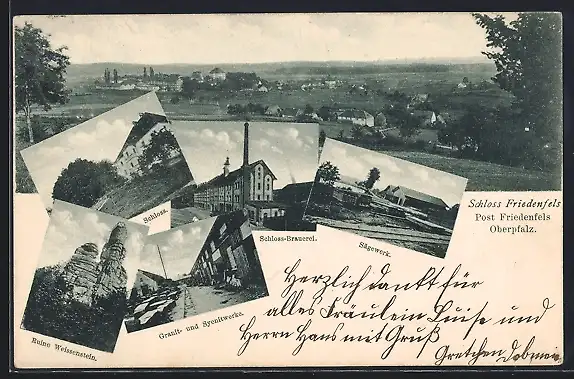 Schloss Friedenfels
Post Friedenfels
Oberpfalz.
Schloss.
Schloss-Brauerei.
Sägewerk.
Granit- und Syenitwerke.
Ruine Weissenstein.
Herzlich dankt für
alles Fräulein Luise und
Herrn Hans mit Gruß
Gretchen